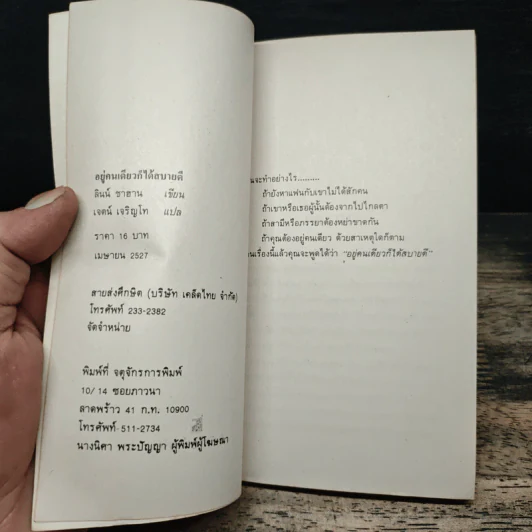 อยู่คนเดียวก็ได้สบายดี
ลินน์ ชาฮาน เขียน
เจตน์ เจริญโท แปล
ราคา 16 บาท
เมษายน 2527
สายส่งศึกษิต (บริษัท เคล็ดไทย จำกัด)
โทรศัพท์ 233-2382
จัดจำหน่าย
พิมพ์ที่ จตุจักรการพิมพ์
10/14 ซอยภาวนา
ลาดพร้าว 41 ก.ท. 10900
โทรศัพท์ 511-2734
นางนิศา พระปัญญา ผู้พิมพ์ผู้โฆษณา
จะทำอย่างไร.........
ถ้ายังหาแฟนกับเขาไม่ได้สักคน
ถ้าเขาหรือเธอผู้นั้นต้องจากไปไกลตา
ถ้าสามีหรือภรรยาต้องหย่าขาดกัน
ถ้าคุณต้องอยู่คนเดียว ด้วยสาเหตุใดก็ตาม
เรื่องนี้แล้วคุณจะพูดได้ว่า "อยู่คนเดียวก็ได้สบายดี"